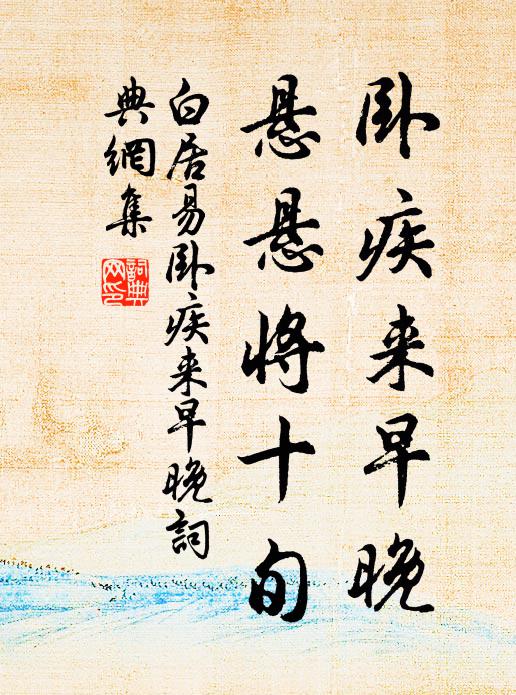 卧疾来早晚
悬悬将十旬
白居易卧疾来早晚詞
典網集
詞典
网印